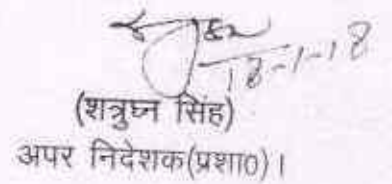 18-1-18
(शत्रुघ्न सिंह)
अपर निदेशक(प्रशा0)।